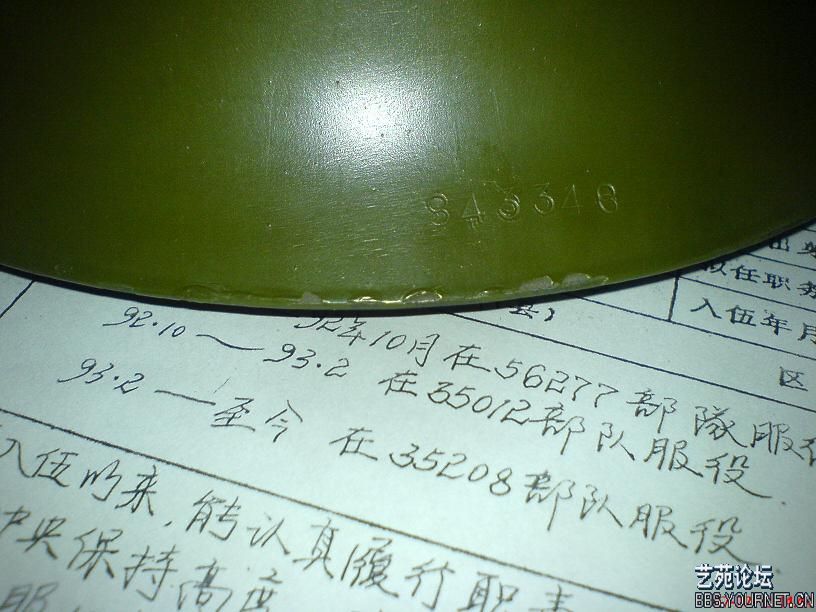 843348
出身
拟任职务
县）
入伍年月
区
92年10月在56277部隊服役
92.10～93.2 在35012部队服役.
93.2—至今 在35208部队服役
入伍以来，能认真履行职责
中央保持高度
服
艺苑论坛
BBS.YOURNET.CN